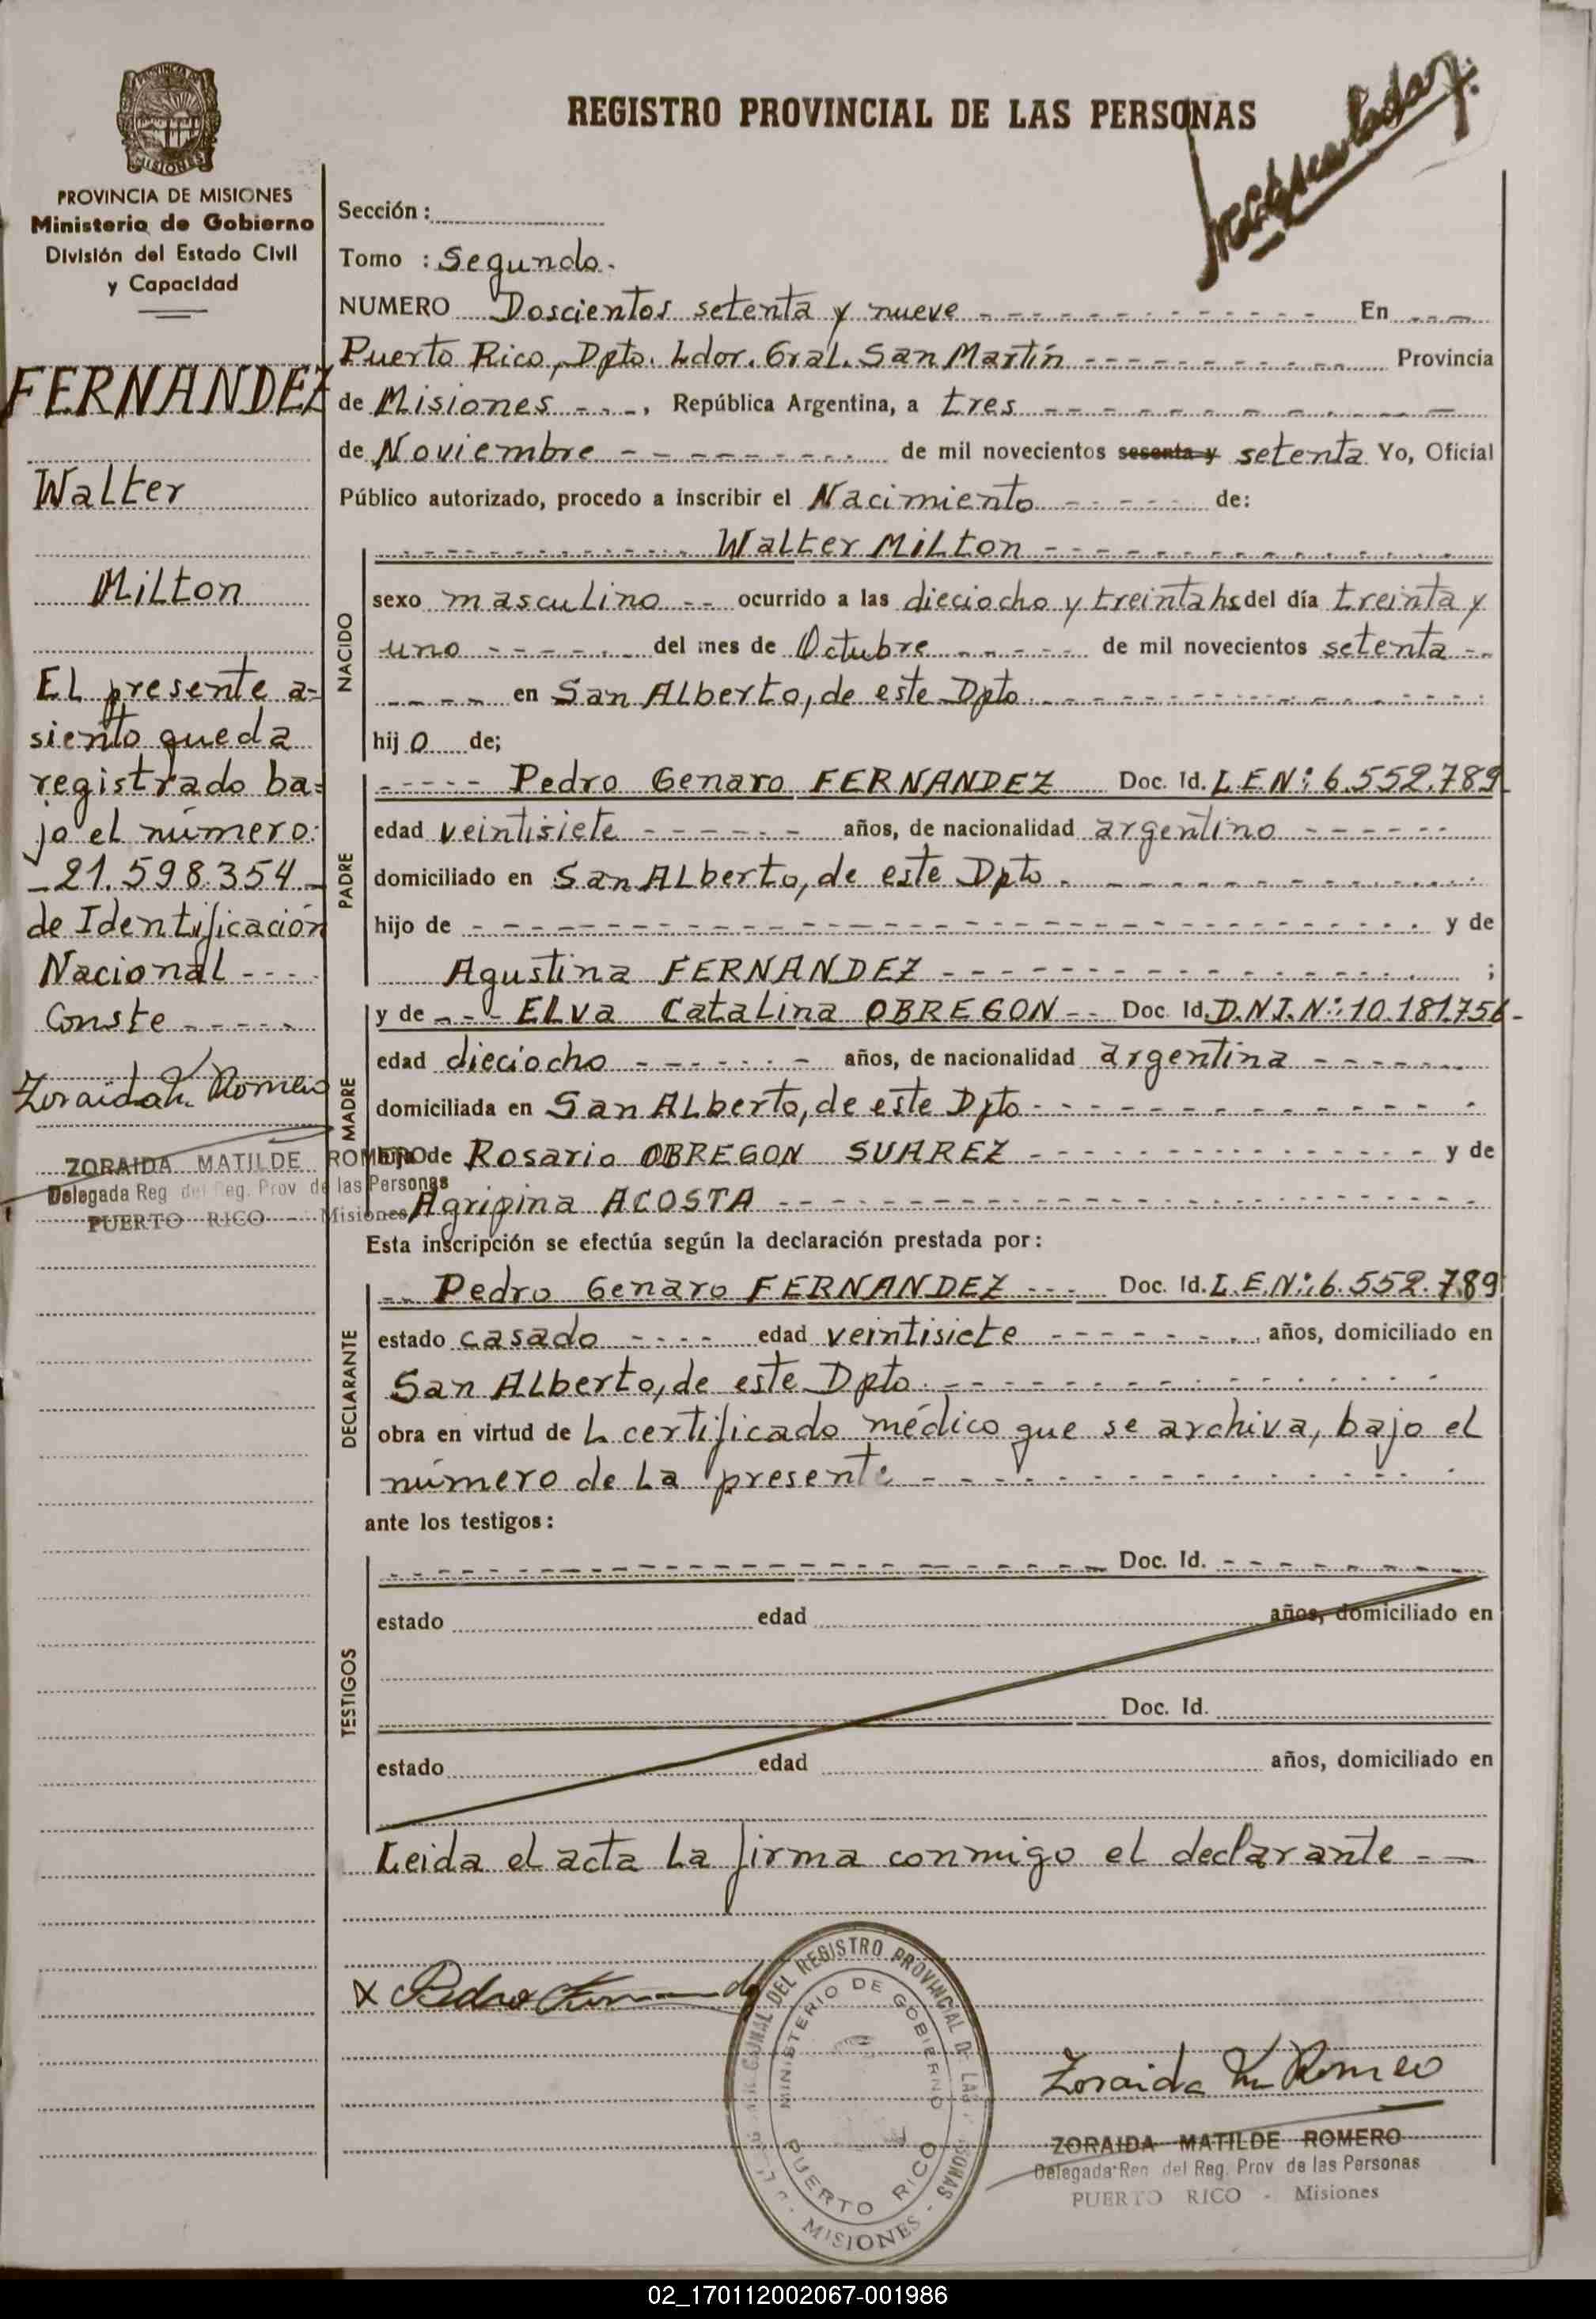 PROVINCIA DE
MISIONES
PROVINCIA DE MISIONES
Ministerio de Gobierno
División del Estado Civil
y Capacidad
FERNANDEZ
Walter
Milton
El presente a=
siento queda
registrado ba=
jo el número:
_21.598.354_
de Identificación
Nacional ----
Conste -----
Zoraida M. Romero
ZORAIDA MATILDE ROMERO
Delegada Reg del Reg. Prov de las Personas
PUERTO RICO - Misiones
REGISTRO PROVINCIAL DE LAS PERSONAS
Sección:
Tomo : Segundo.
NUMERO Doscientos setenta y nueve - - - En - - -
Puerto Rico, Dpto. Ldor. Gral. San Martín - - - Provincia
de Misiones - - -, República Argentina, a tres - - -
de Noviembre - - - de mil novecientos sesenta y setenta Yo, Oficial
Público autorizado, procedo a inscribir el Nacimiento - - - de:
NACIDO
- - - Walter Milton - - -
sexo masculino - - ocurrido a las dieciocho y treinta hs del día treinta y
uno - - - del mes de Octubre - - - de mil novecientos setenta - -
- - - en San Alberto, de este Dpto. - - -
hijo de;
PADRE
- - - Pedro Genaro FERNANDEZ Doc. Id. L.E.Nº: 6.552.789
edad veintisiete - - - años, de nacionalidad argentino - - -
domiciliado en San Alberto, de este Dpto. - - -
hijo de - - - y de
Agustina FERNANDEZ - - - ;
MADRE
y de - - - Elva Catalina OBREGON - - Doc. Id. D.N.I.Nº: 10.181.756-
edad dieciocho - - - años, de nacionalidad argentina - - -
domiciliada en San Alberto, de este Dpto - - -
hija de Rosario OBREGON SUAREZ - - - y de
Agripina ACOSTA - - -
Esta inscripción se efectúa según la declaración prestada por:
DECLARANTE
- - Pedro Genaro FERNANDEZ - - - Doc. Id. L.E.Nº: 6.552.789
estado casado - - - edad veintisiete - - - años, domiciliado en
San Alberto, de este Dpto. - - -
obra en virtud de L certificado médico que se archiva, bajo el
número de la presente - - -
ante los testigos:
TESTIGOS
- - - Doc. Id. - - -
estado edad años, domiciliado en
Doc. Id.
estado edad años, domiciliado en
Leida el acta la firma conmigo el declarante - -
X Pedro Fernandez
DEL REGISTRO PROVINCIAL DE LAS PERSONAS - MISIONES
MINISTERIO DE GOBIERNO
PUERTO RICO
Zoraida M Romero
ZORAIDA MATILDE ROMERO
Delegada Reg del Reg. Prov de las Personas
PUERTO RICO - Misiones
02_170112002067-001986